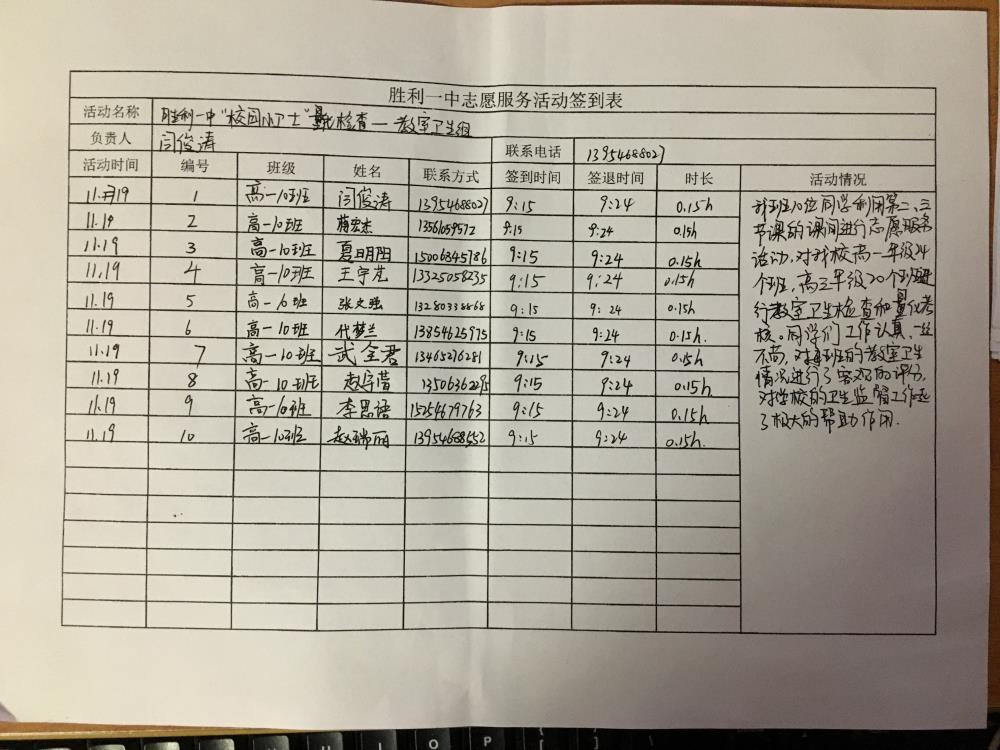 胜利一中志愿服务活动签到表
活动名称 胜利一中"校园小卫士"量化检查—教室卫生组
负责人 闫俊涛 联系电话 13954688027
活动时间 编号 班级 姓名 联系方式 签到时间 签退时间 时长 活动情况
11.19 1 高一10班 闫俊涛 13954688027 9:15 9:24 0.15h
11.19 2 高一10班 蒋宏杰 9:15 9:24 0.15h
11.19 3 高一10班 夏明阳 15006845786 9:15 9:24 0.15h
11.19 4 高一10班 王宇龙 13325058235 9:15 9:24 0.15h
11.19 5 高一10班 张文强 13280338868 9:15 9:24 0.15h
11.19 6 高一10班 代梦兰 13854625975 9:15 9:24 0.15h.
11.19 7 高一10班 武全君 13465276281 9:15 9:24 0.15h
11.19 8 高一10班 赵宇萱 9:15 9:24 0.15h
11.19 9 高一10班 李思语 15254679763 9:15 9:24 0.15h
11.19 10 高一10班 赵瑞丽 13954688552 9:15 9:24 0.15h.
我班10位同学利用第二、三
节课的课间进行志愿服务
活动,对我校高一年级24
个班,高三年级20个班进
行教室卫生检查和量化考
核。同学们工作认真、一丝
不苟,对每班的教室卫生
情况进行了客观的评分,
对学校的卫生监督工作起
了极大的帮助作用.
U I O P